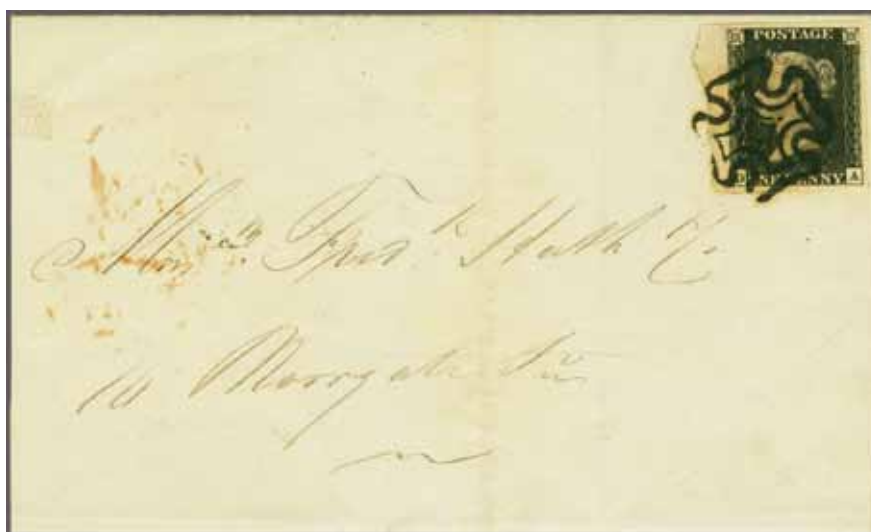 POSTAGE
ONE PENNY
A
Fred.k Huth &Co
10 Moorgate St